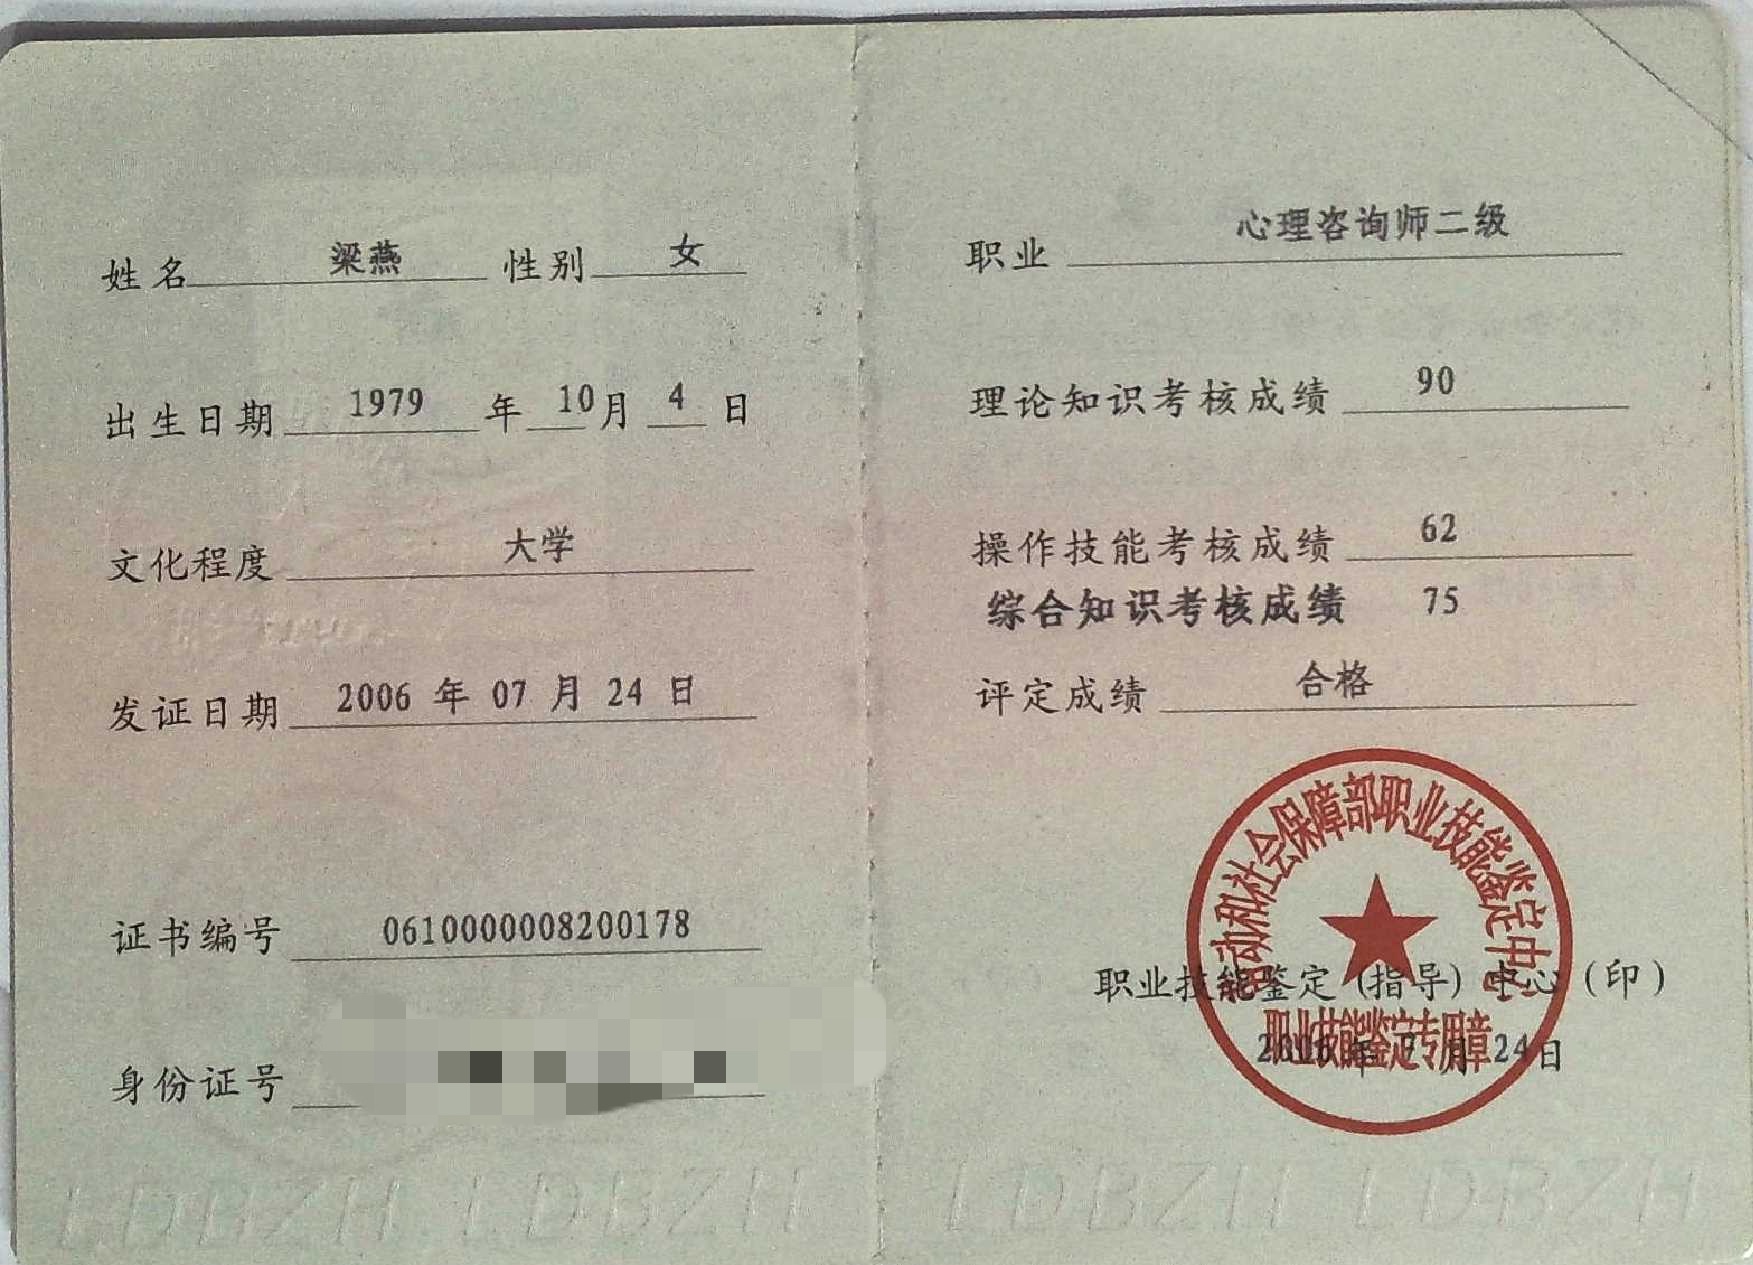 姓名 梁燕 性别 女
出生日期 1979 年 10 月 4 日
文化程度 大学
发证日期 2006 年 07 月 24 日
证书编号 0610000008200178
身份证号
LDBZH LDBZH
职业 心理咨询师二级
理论知识考核成绩 90
操作技能考核成绩 62
综合知识考核成绩 75
评定成绩 合格
劳动和社会保障部职业技能鉴定中心
职业技能鉴定(指导)中心(印)
职业技能鉴定专用章
2006 年 7 月 24 日
LDBZH LDBZH